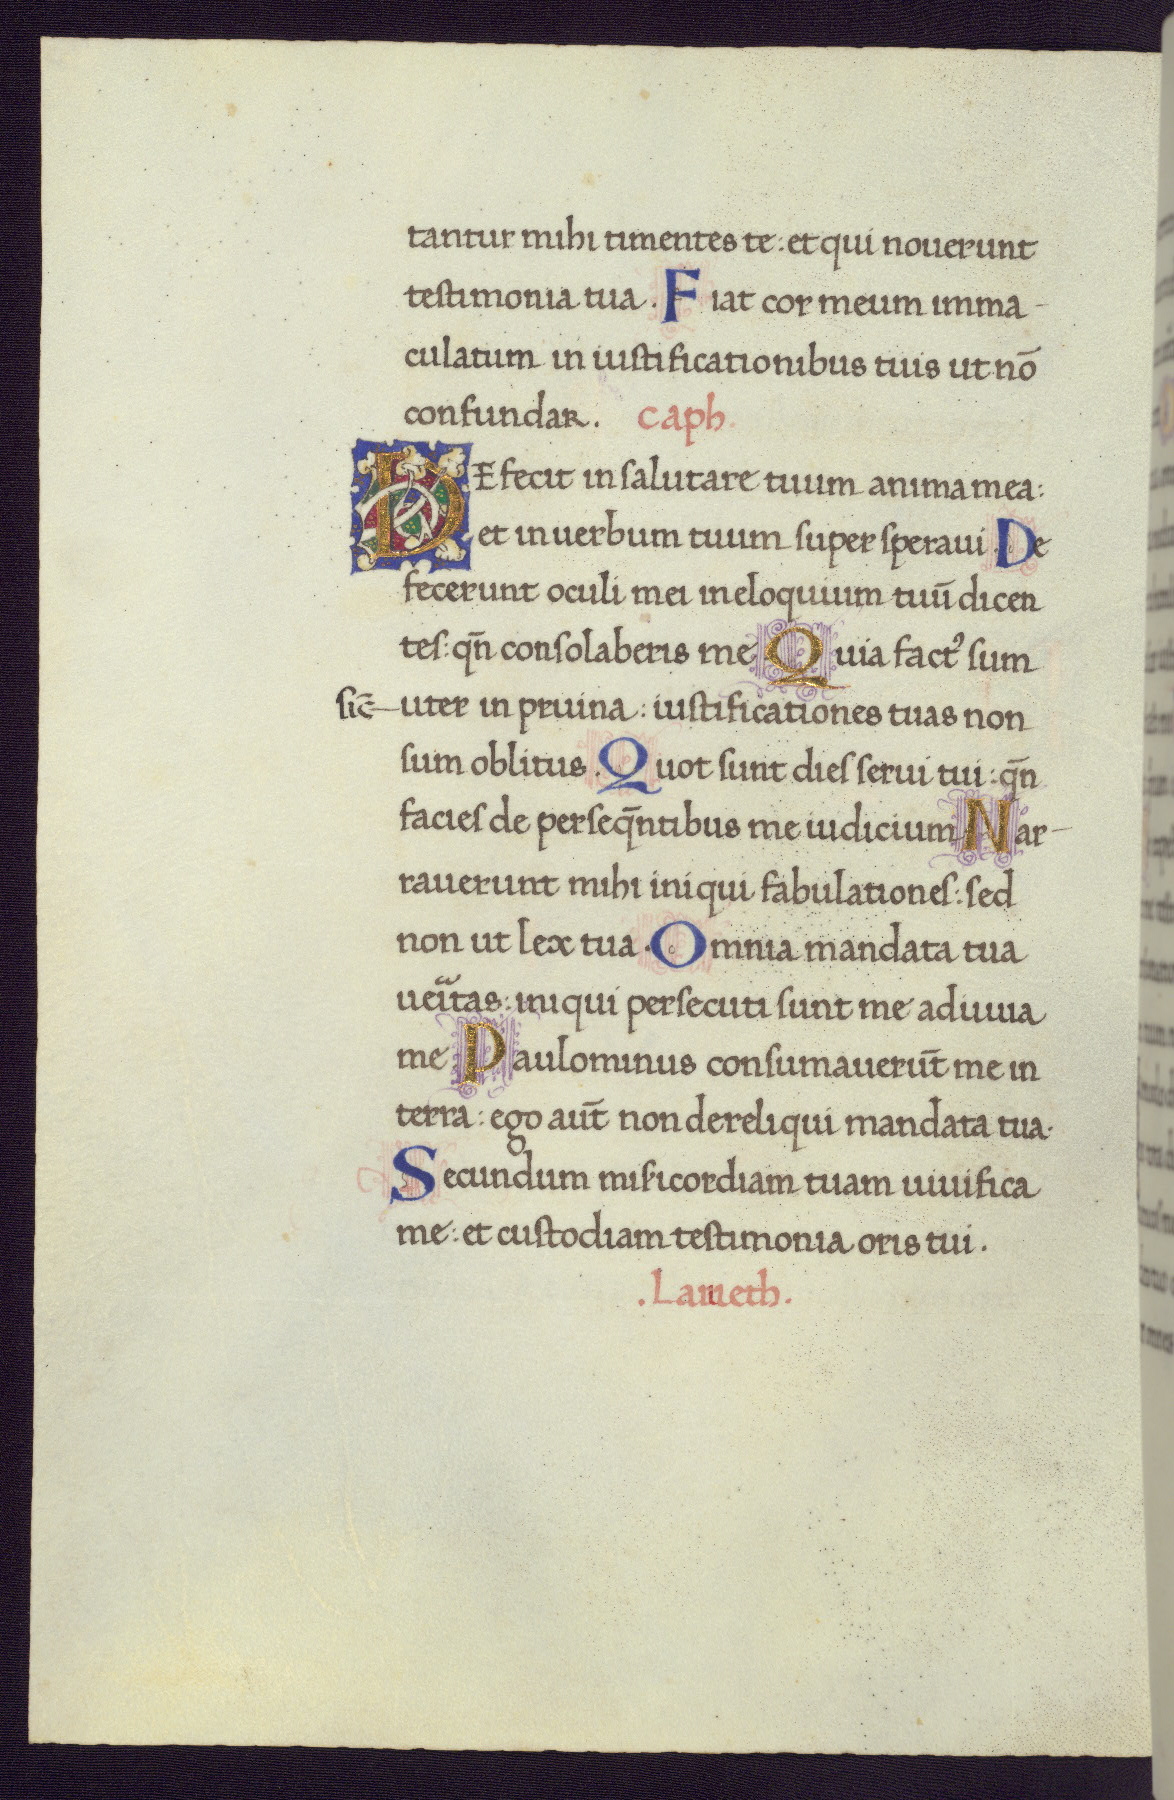 tantur mihi timentes te: et qui nouerunt
testimonia tua. Fiat cor meum imma-
culatum in iustificationibus tuis ut nō
confundar. caph.
DEfecit in salutare tuum anima mea:
et in uerbum tuum super speraui. De
fecerunt oculi mei in eloquium tuū dicen
tes: qñ consolaberis me Quia fact᾽ sum
sic̄ uter in pruina: iustificationes tuas non
sum oblitus. Quot sunt dies serui tui: qñ
facies de perseq̄ntibus me iudicium Nar-
rauerunt mihi iniqui fabulationes: sed
non ut lex tua. Omnia mandata tua
ueritas: iniqui persecuti sunt me adiuua
me Paulominus consumauerūt me in
terra: ego aut̄ non dereliqui mandata tua.
Secundum misericordiam tuam uiuifica
me: et custodiam testimonia oris tui.
.Lameth.